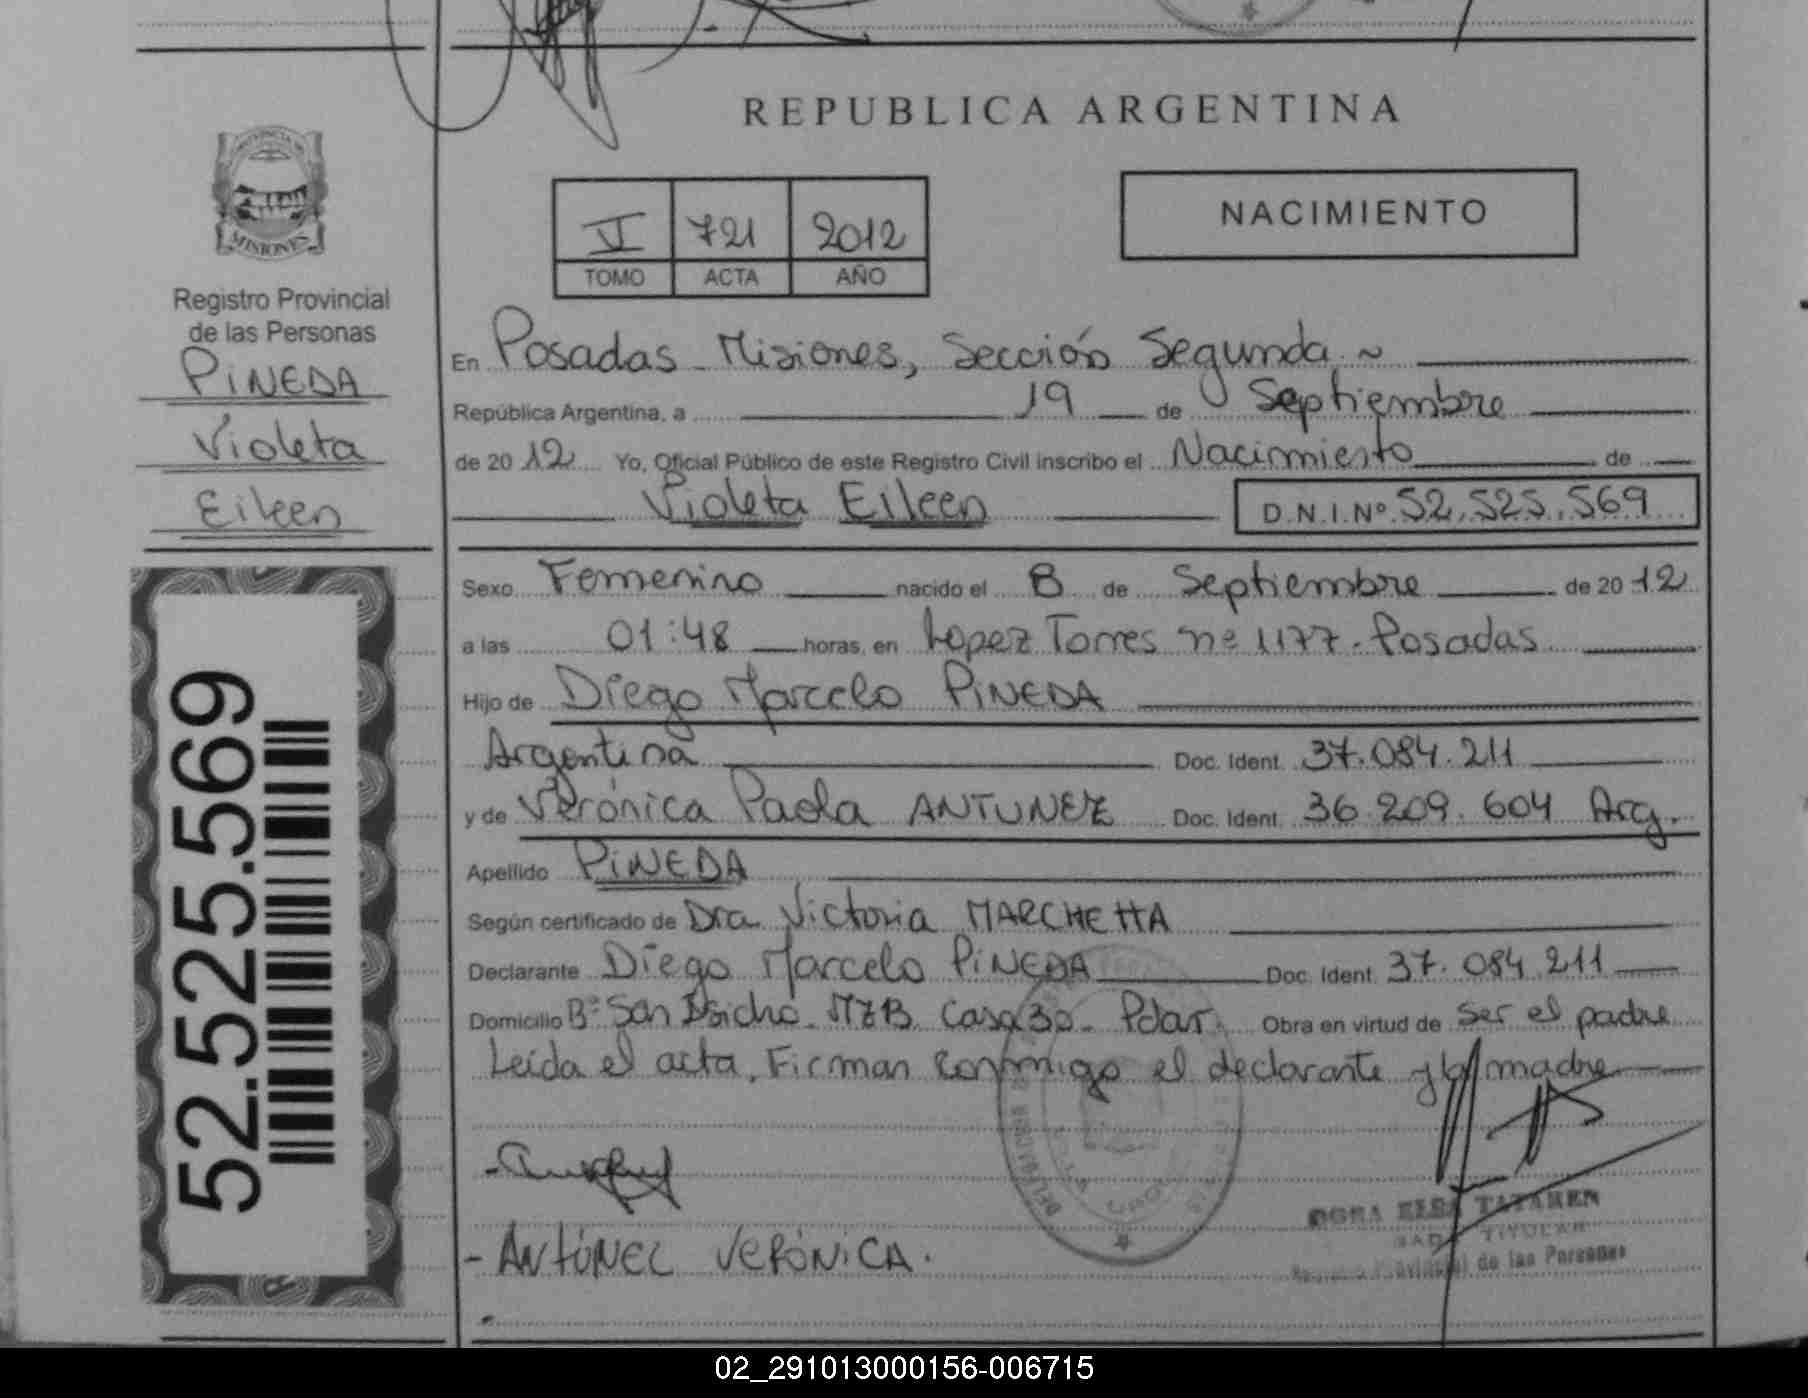 REPUBLICA ARGENTINA
PROVINCIA DE
MISIONES
Registro Provincial
de las Personas
PINEDA
Violeta
Eileen
52.525.569
VI 721 2012
TOMO ACTA AÑO
NACIMIENTO
En Posadas - Misiones, Sección Segunda ~
República Argentina, a 19 de Septiembre
de 2012 Yo, Oficial Público de este Registro Civil inscribo el Nacimiento de
Violeta Eileen D.N.I.Nº 52.525.569
Sexo Femenino nacido el 8 de Septiembre de 2012
a las 01:48 horas, en Lopez Torres nº 1177 - Posadas
Hijo de Diego Marcelo PINEDA
Argentina Doc. Ident. 37.084.211
y de Verónica Paola ANTUNEZ Doc. Ident. 36.209.604 Arg.
Apellido PINEDA
Según certificado de Dra. Victoria MARCHETTA
Declarante Diego Marcelo PINEDA Doc. Ident. 37.084.211
Domicilio Bº San Isidro. MZB Casa 30 - Pdas. Obra en virtud de ser el padre
Leída el acta, Firman conmigo el declarante y la madre
- ANTÚNEZ VERÓNICA.
ELSA TATAREN
TITULAR
Provincial de las Personas
02_291013000156-006715